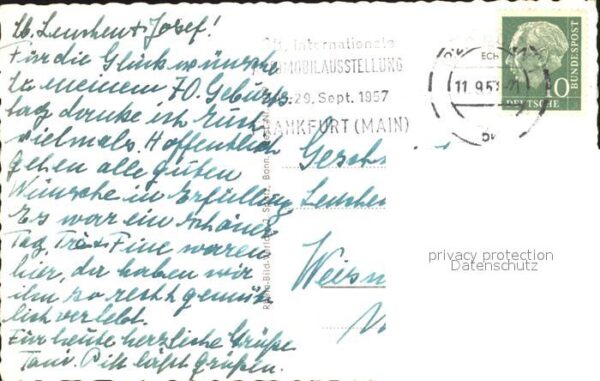 Lb. Lenchen & Josef!
Für die Glückwünsche
zu meinem 70. Geburts-
tag danke ich Euch
vielmals. Hoffentlich
gehen alle guten
Wünsche in Erfüllung
Es war ein schöner
Tag, & Fine waren
hier, da haben wir
ihn so recht gemüt-
lich verlebt.
Für heute herzliche Grüße
Pitt läßt grüßen.
Internationale
MOBILAUSSTELLUNG
29. Sept. 1957
ANKFURT (MAIN)
11.9.5
10
DEUTSCHE
BUNDESPOST
Gesch
Lenchen
Weism
privacy protection
Datenschutz